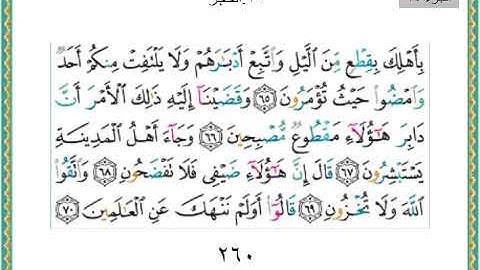 بِأَهْلِكَ بِقِطْعٍ مِّنَ الَّيْلِ وَاتَّبِعْ أَدْبَارَهُمْ وَلَا يَلْتَفِتْ مِنكُمْ أَحَدٌ
وَامْضُوا حَيْثُ تُؤْمَرُونَ ٦٥ وَقَضَيْنَا إِلَيْهِ ذَٰلِكَ الْأَمْرَ أَنَّ
دَابِرَ هَٰؤُلَاءِ مَقْطُوعٌ مُّصْبِحِينَ ٦٦ وَجَاءَ أَهْلُ الْمَدِينَةِ
يَسْتَبْشِرُونَ ٦٧ قَالَ إِنَّ هَٰؤُلَاءِ ضَيْفِي فَلَا تَفْضَحُونِ ٦٨ وَاتَّقُوا
اللَّهَ وَلَا تُخْزُونِ ٦٩ قَالُوا أَوَلَمْ نَنْهَكَ عَنِ الْعَالَمِينَ ٧٠
٢٦٠